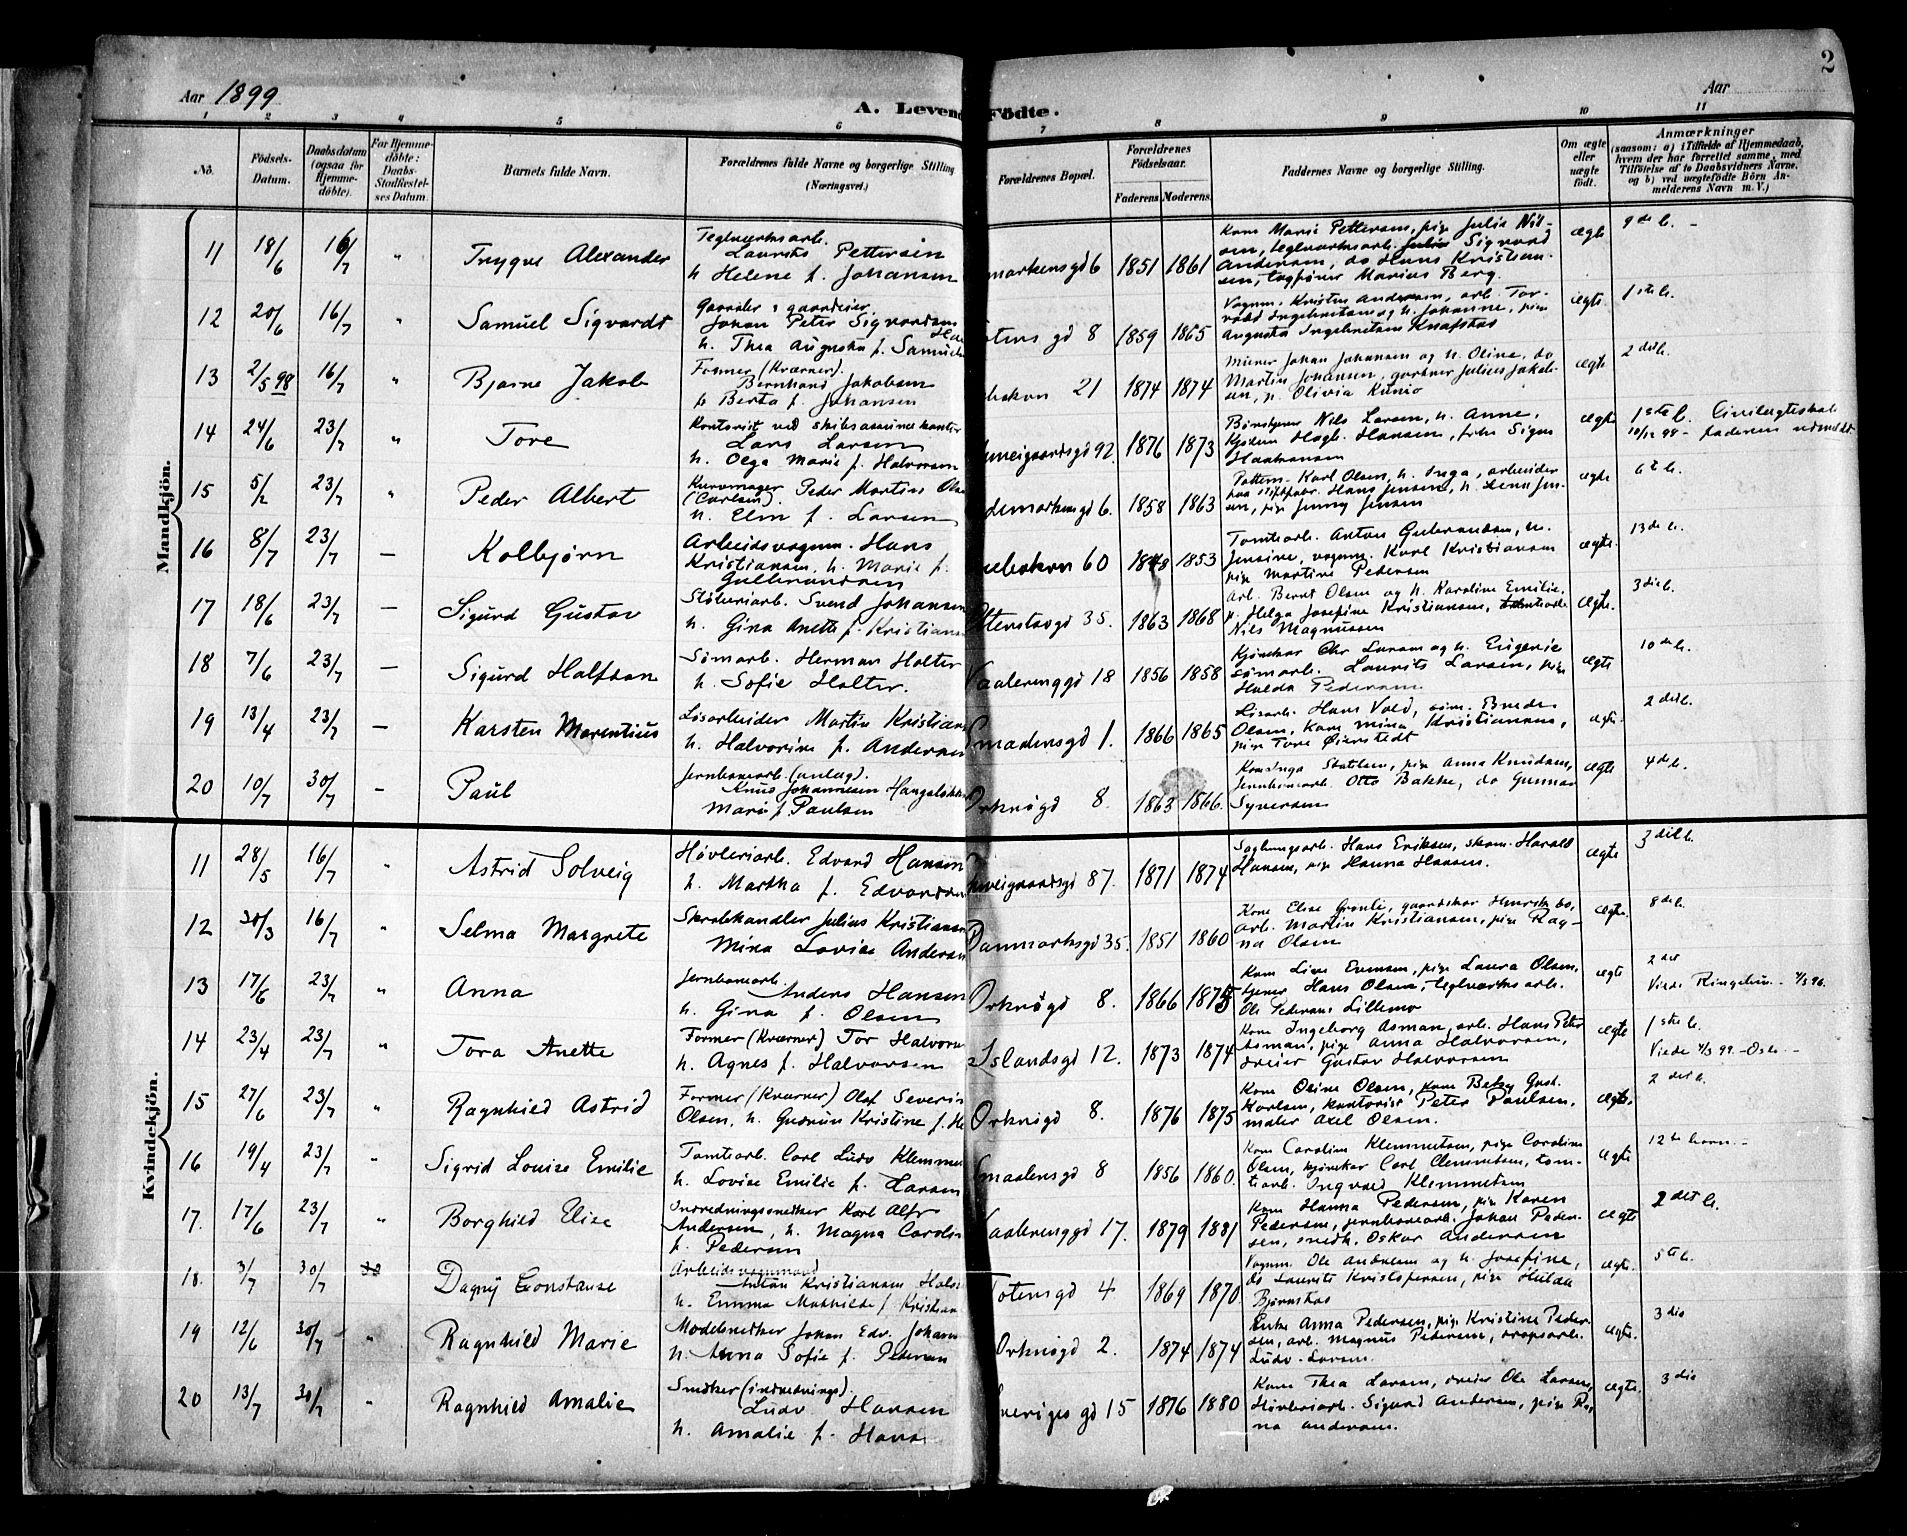 2
Aar 1899
Aar
A. Levend Födte.
1 2 3 4 5 6 7 8 9 10 11
No.
Födsels-Datum.
Daabsdatum (ogsaa for Hjemmedöbte).
For Hjemmedöbte: Daabs-Stadfæstelses Datum.
Barnets fulde Navn.
Forældrenes fulde Navne og borgerlige Stilling (Næringsvei.)
Forældrenes Bopæl.
Forældrenes Födselsaar.
Faderens. Moderens.
Faddernes Navne og borgerlige Stilling.
Om ægte eller uægte födt.
Anmærkninger
(saasom: a) i Tilfælde af Hjemmedaab, hvem der har forrettet samme, med Tilföielse af to Daabsvidners Navne, og b) ved uægtefödte Börn Anmelderens Navn m. V.)
Mandkjön.
11 18/6 16/7 " Trygve Alexander
Teglværksarb.
Laurits Pettersen
h. Helene f. Johansen
markensgd 6 1851 1861
Kone Marie Pettersen, pige Julie Nilsen, teglværksarb. Sigvard Andersen, do Hans Kristiansen, togfører Marius Berg.
ægte 9de b. -
12 20/6 16/7 " Samuel Sigvardt
Johan Peter Sigvardsen
h. Thea Augusta f. Samuels
otens gd 8 1859 1865
Vognm. Kristen Andersen, arb. Torvald Ingebretsen og h. Johanne, pige Augusta Ingebretsen Knapstad
ægte. 1ste b.
13 2/5 98 16/7 " Bjarne Jakob
Former (Kværner).
Bernhard Jakobsen
h Berta f. Johansen
ebekvn 21 1874 1874
Murer Johan Johansen og h. Oline, do Martin Johansen, gartner Julius Jakobsen, h. Olivia
ægte 2det b.
14 24/6 23/7 " Tore
Kontorist ved skibsassurancekontor
Lars Larsen
h. Olga Marie f. Halvorsen
hweigaardsgd 92. 1876 1873
Nils Larsen, h. Anne, Hagb. Hansen, frk. Signe Haakansen
ægte 1ste b. Civilægteskab
10/12 98 - faderen udmeldt
15 5/2 23/7 " Peder Albert
Kurvmager Peder Martin Ols
(Carlsen).
h. Elen f. Larsen
demarkensgd 6. 1858 1863
Pottem. Karl Olsen, h. Inga, arbeider paa stiftfabr. Hans Jensen, h. Lena Jensen, pige Jenny Jensen
ægte 6te b.
16 8/7 23/7 - Kolbjørn
Arbeidsvognm. Hans
Kristiansen, h. Marie f.
Gulbrandsen
uebekvn 60 1848 1853
Tomtearb. Anton Gulbrandsen, h. Jensine, vognm. Karl Kristiansen pige Martine Pedersen
ægte. 13de b.
17 18/6 23/7 - Sigurd Gustav
Støberiarb. Svend Johansen
h. Gina Anette f. Kristians
Ottenstadgd 35. 1863 1868
arb. Bernt Olsen og h. Karoline Emilie, p. Helga Josefine Kristiansen, tomtearb. Nils Magnussen
ægte. 3die b.
18 7/6 23/7 - Sigurd Halfdan
Sømarb. Herman Holter
h. Sofie Holter.
Vaalerenggd 18 1856 1858
Kjørekar Chr Larsen og h. Eugenie sømarb. Laurits Larsen, pige Hulda Pedersen
ægte 10de b.
19 13/4 23/7 - Karsten Marentius
Løsarbeider Martin Kristians
h. Halvorine f. Andersen
Smaalensgd 1. 1866 1865
Løsarb. Hans Vold, Olsen, kone Mina Kristiansen, pige Tore Øierstedt
ægte. 2det b.
20 10/7 30/7 - Paul
Jernbanearb. (anlæg).
Knud Johannesen
Marie f. Paulsen
Orknøgd 8. 1863 1866.
Kone Inga pige Anna Knudsen, Jernbanearb. Otto Bakke, do Gunnar Syversen
ægte 4de b.
Kvindekjön.
11 28/5 16/7 " Astrid Solveig
Høvleriarb. Edvard Hansen
h. Martha f. Edvardsen
hweigaardsgd 87. 1871 1874
Sagbrugsarb. Hans Eriksen, skom. Harald Hansen, pige Hanna Hansen.
ægte 3die b.
12 30/3 16/7 " Selma Margrete
Skrabhandler Julius Kristiansen
Mina Lovise Andersen
Danmarksgd 35. 1851 1860
Kone Elise Grønli, gaardskar Henrik bo, arb. Martin Kristiansen, pige Ragna Olsen
ægte. 8de b.
13 17/6 23/7 " Anna
Jernbanearb.
Anders Hansen
h. Gina f. Olsen
Orknøgd 8. 1866 1875
Kone Lina Evensen, pige Laura Olsen, tjener Hans Olsen, teglværksarb. Ole Pedersen Lillemo
ægte 2det
Viede Ringebu. 4/3 96.
14 23/4 23/7 " Tora Anette
Former (Kværner) Tor Halvors
h. Agnes f. Halvorsen
Islandsgd 12. 1873 1874
Kone Ingeborg Asman, arb. Hans Peter Asman, pige Anna Halvorsen, dreier Gustav Halvorsen
ægte 1ste b.
Viede 4/3 99. - Oslo. -
15 27/6 23/7 " Ragnhild Astrid
Former (Kværner) Olaf Severin
Olsen, h. Gudrun Kristine f. H
Orknøgd 8. 1876 1875
Kone Oline Olsen, kone Betzy Gust. Karlsen, kontorist Peter Paulsen, maler Axel Olsen.
ægte. 2det b.
16 19/4 23/7 " Sigrid Louise Emilie
Tomtarb. Carl Ludv Klemme
h. Lovise Emilie f. Larsen
Smaalensgd 8 1856 1860.
Kone Caroline Klemmetsen, pige Caroline Olsen, kjørekar Carl Clemmetsen, tomtarb. Ingvald Klemmetsen
ægte 12te barn. -
17. 17/6 23/7 " Borghild Elise
Indredningssnedker Karl Alfr
Andersen, h. Magna Carolin
f. Pedersen
Vaalerenggd 17. 1879 1881
Kone Hanna Pedersen, pige Karen Pedersen, jernbanearb. Johan Pedersen, snedk. Oskar Andersen
ægte 2det b.
18. 3/7 30/7 Dagny Constanse
Arbeidsvognmand
Anton Kristiansen Hals
h. Emma Mathilde f Kristian
Totensgd 4 1869 1870
Vognm. Ole Andersen og h. Josefine, do Laurits Kristofersen, pige Hulda Bjørnstad
ægte. 5te b.
19 12/6 30/7 " Ragnhild Marie
Modelsnedker Johan Edv. Johans
h. Anna Sofie f. Pedersen
Orknøgd 2. 1874 1874
Enke Anna Pedersen, pige Kristine Pedersen, arb. Magnus Pedersen, Ludv. Larsen.
ægte. 3die
20 13/7 30/7 " Ragnhild Amalie
Snedker (indrednings).
Ludv Hansen
h. Amalie f. Hans
Sveriges gd 15 1876 1880
Kone Thea Larsen, dreier Ole Larsen, Høvleriarb. Sigurd Andersen, pige Ragna Andersen.
ægte. 3die